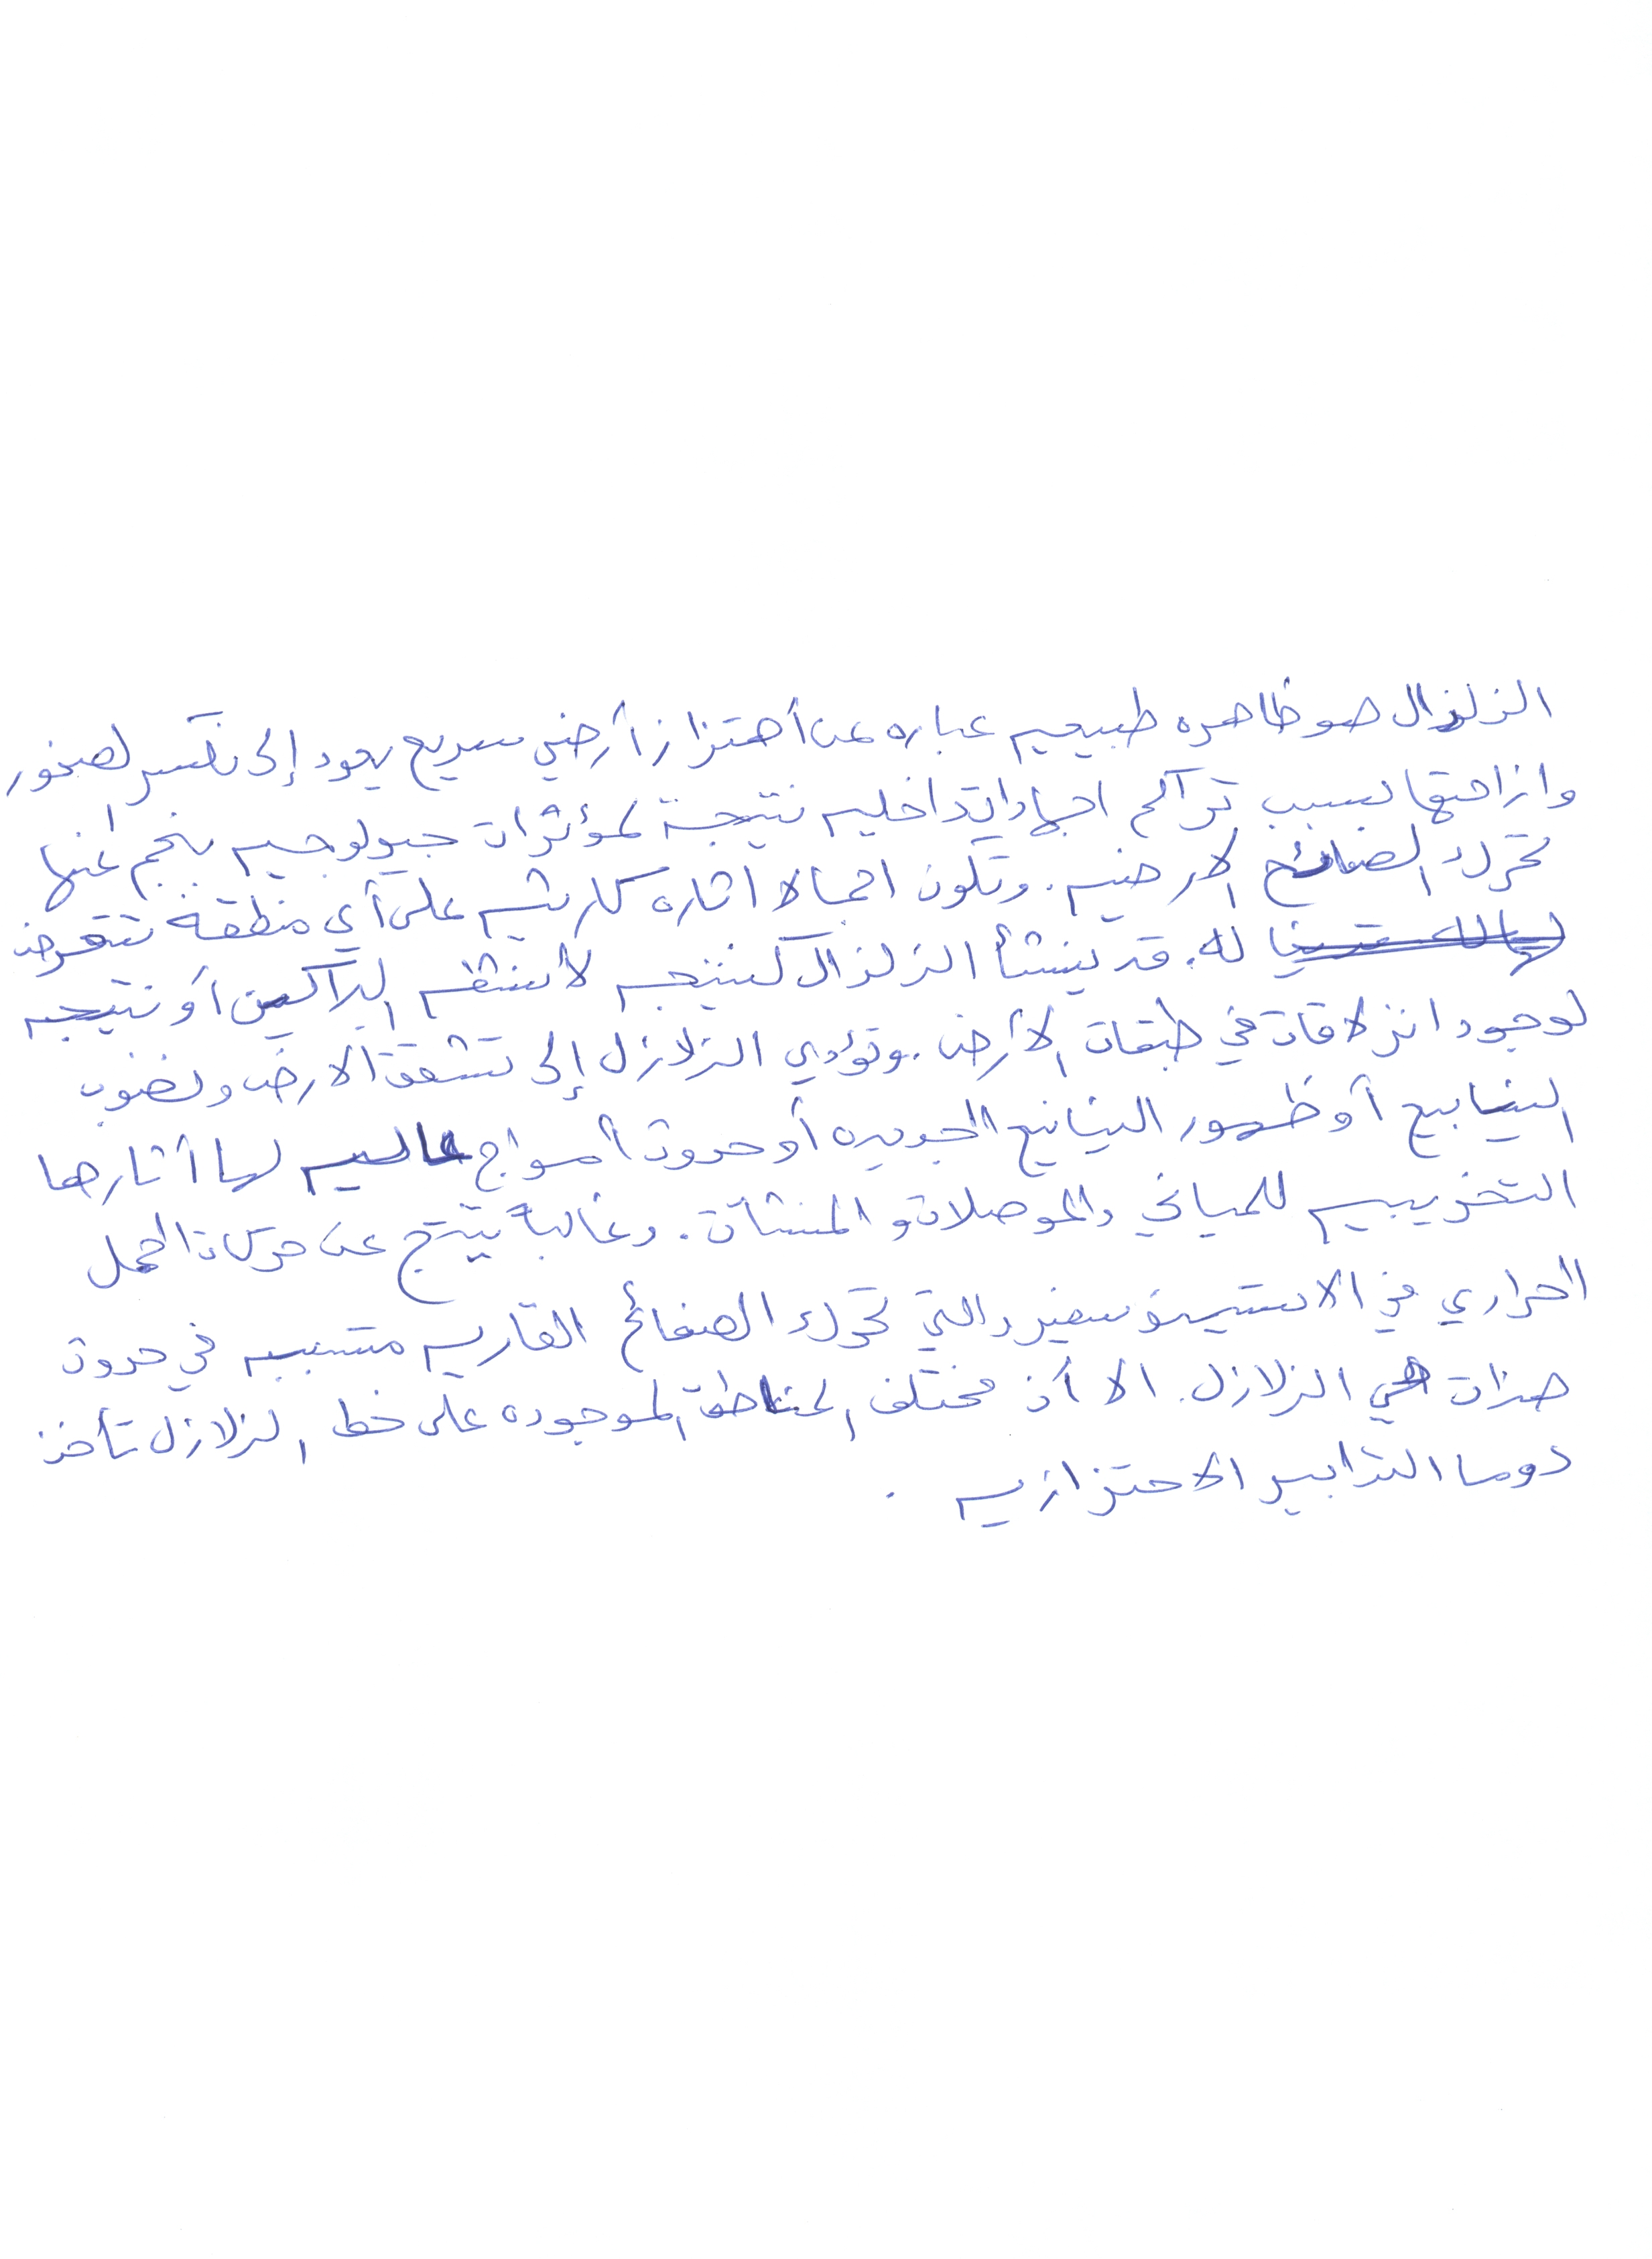 الزلزال هو ظاهره طبيعيه عباره عن أهتزاز أرضي سريع يعود إلى تكسر الصخور
وازاحتها بسبب تراكم اجهادات داخليه نتيجة لمؤثرات جيولوجيه ينجم عنها
تحرك الصفائح الارضيه. وتكون اثاره كارثيه على أي منطقة تتعرض
له. قد ينشأ الزلزال كنتيجه لأنشطه البراكين أو نتيجه
لوجود انزلاقات في طبقات الأرض. وتؤدي الزلازل إلى تشقق الارض ونضوب
الينابيع أو ظهور الينابيع الجديده أو حدوث أمواج عاليه لها أثارها
التخريبيه للمباني والموصلات و المنشآت. وغالباً ينتج عن حركات الحمل
الحراري في الاستينوسفير والتي تحرك الصفائح القاريه متسببه في حدوث
هزات هي الزلازل. الا أن مختلف المناطق الموجوده على خط الزلازل تأخذ
دوما التدابير الاحترازيه .